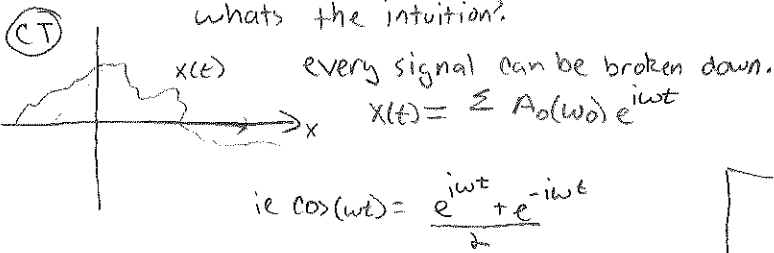 whats the intuition?
CT
x(t)
every signal can be broken down.
x(t) = Σ A₀(ω₀) e^{iωt}
x
ie cos(ωt) = \frac{e^{iωt} + e^{-iωt}}{2}